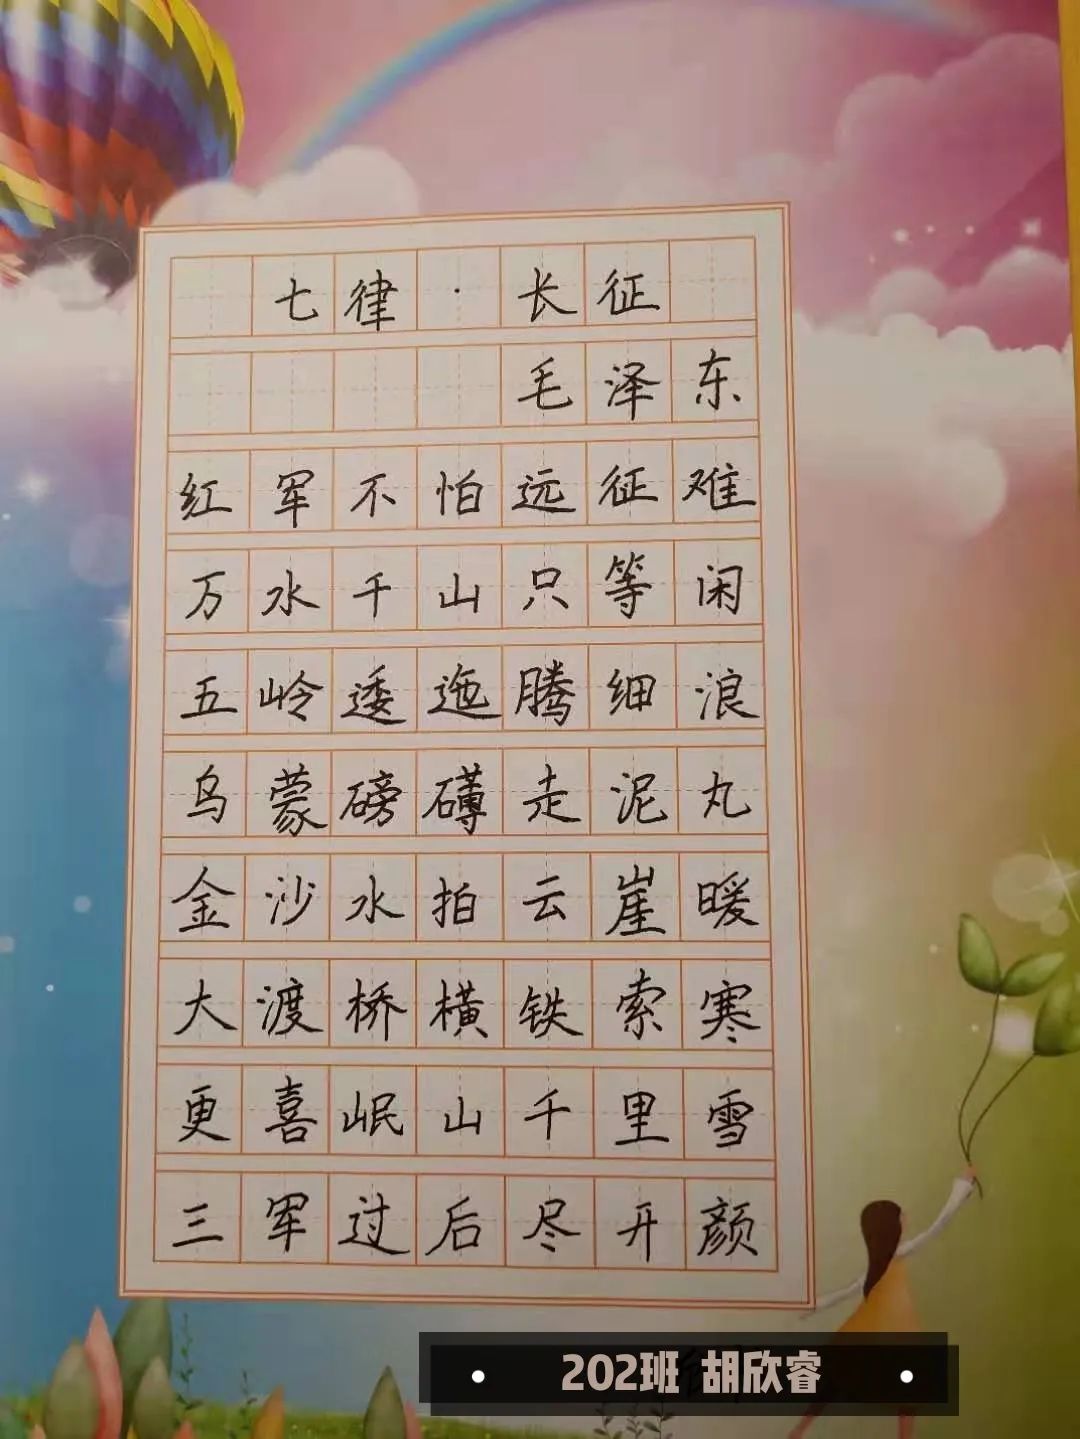 七律·长征
毛泽东
红军不怕远征难
万水千山只等闲
五岭逶迤腾细浪
乌蒙磅礴走泥丸
金沙水拍云崖暖
大渡桥横铁索寒
更喜岷山千里雪
三军过后尽开颜
202班 胡欣睿